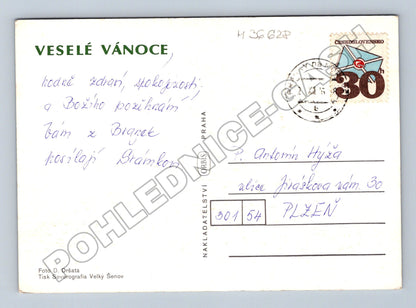 M 36 628
VESELÉ VÁNOCE,
hodně zdraví, spokojenosti,
a Božího požehnání
Vám z
posílají
ČESKOSLOVENSKO
30h
P. Antonín Hyža
ulice Jiráskova nám. 30
301 54 PLZEŇ
NAKLADATELSTVÍ ORBIS PRAHA
Foto D. Oršata
Tisk Severografia Velký Šenov
POHLEDNICE-CACH